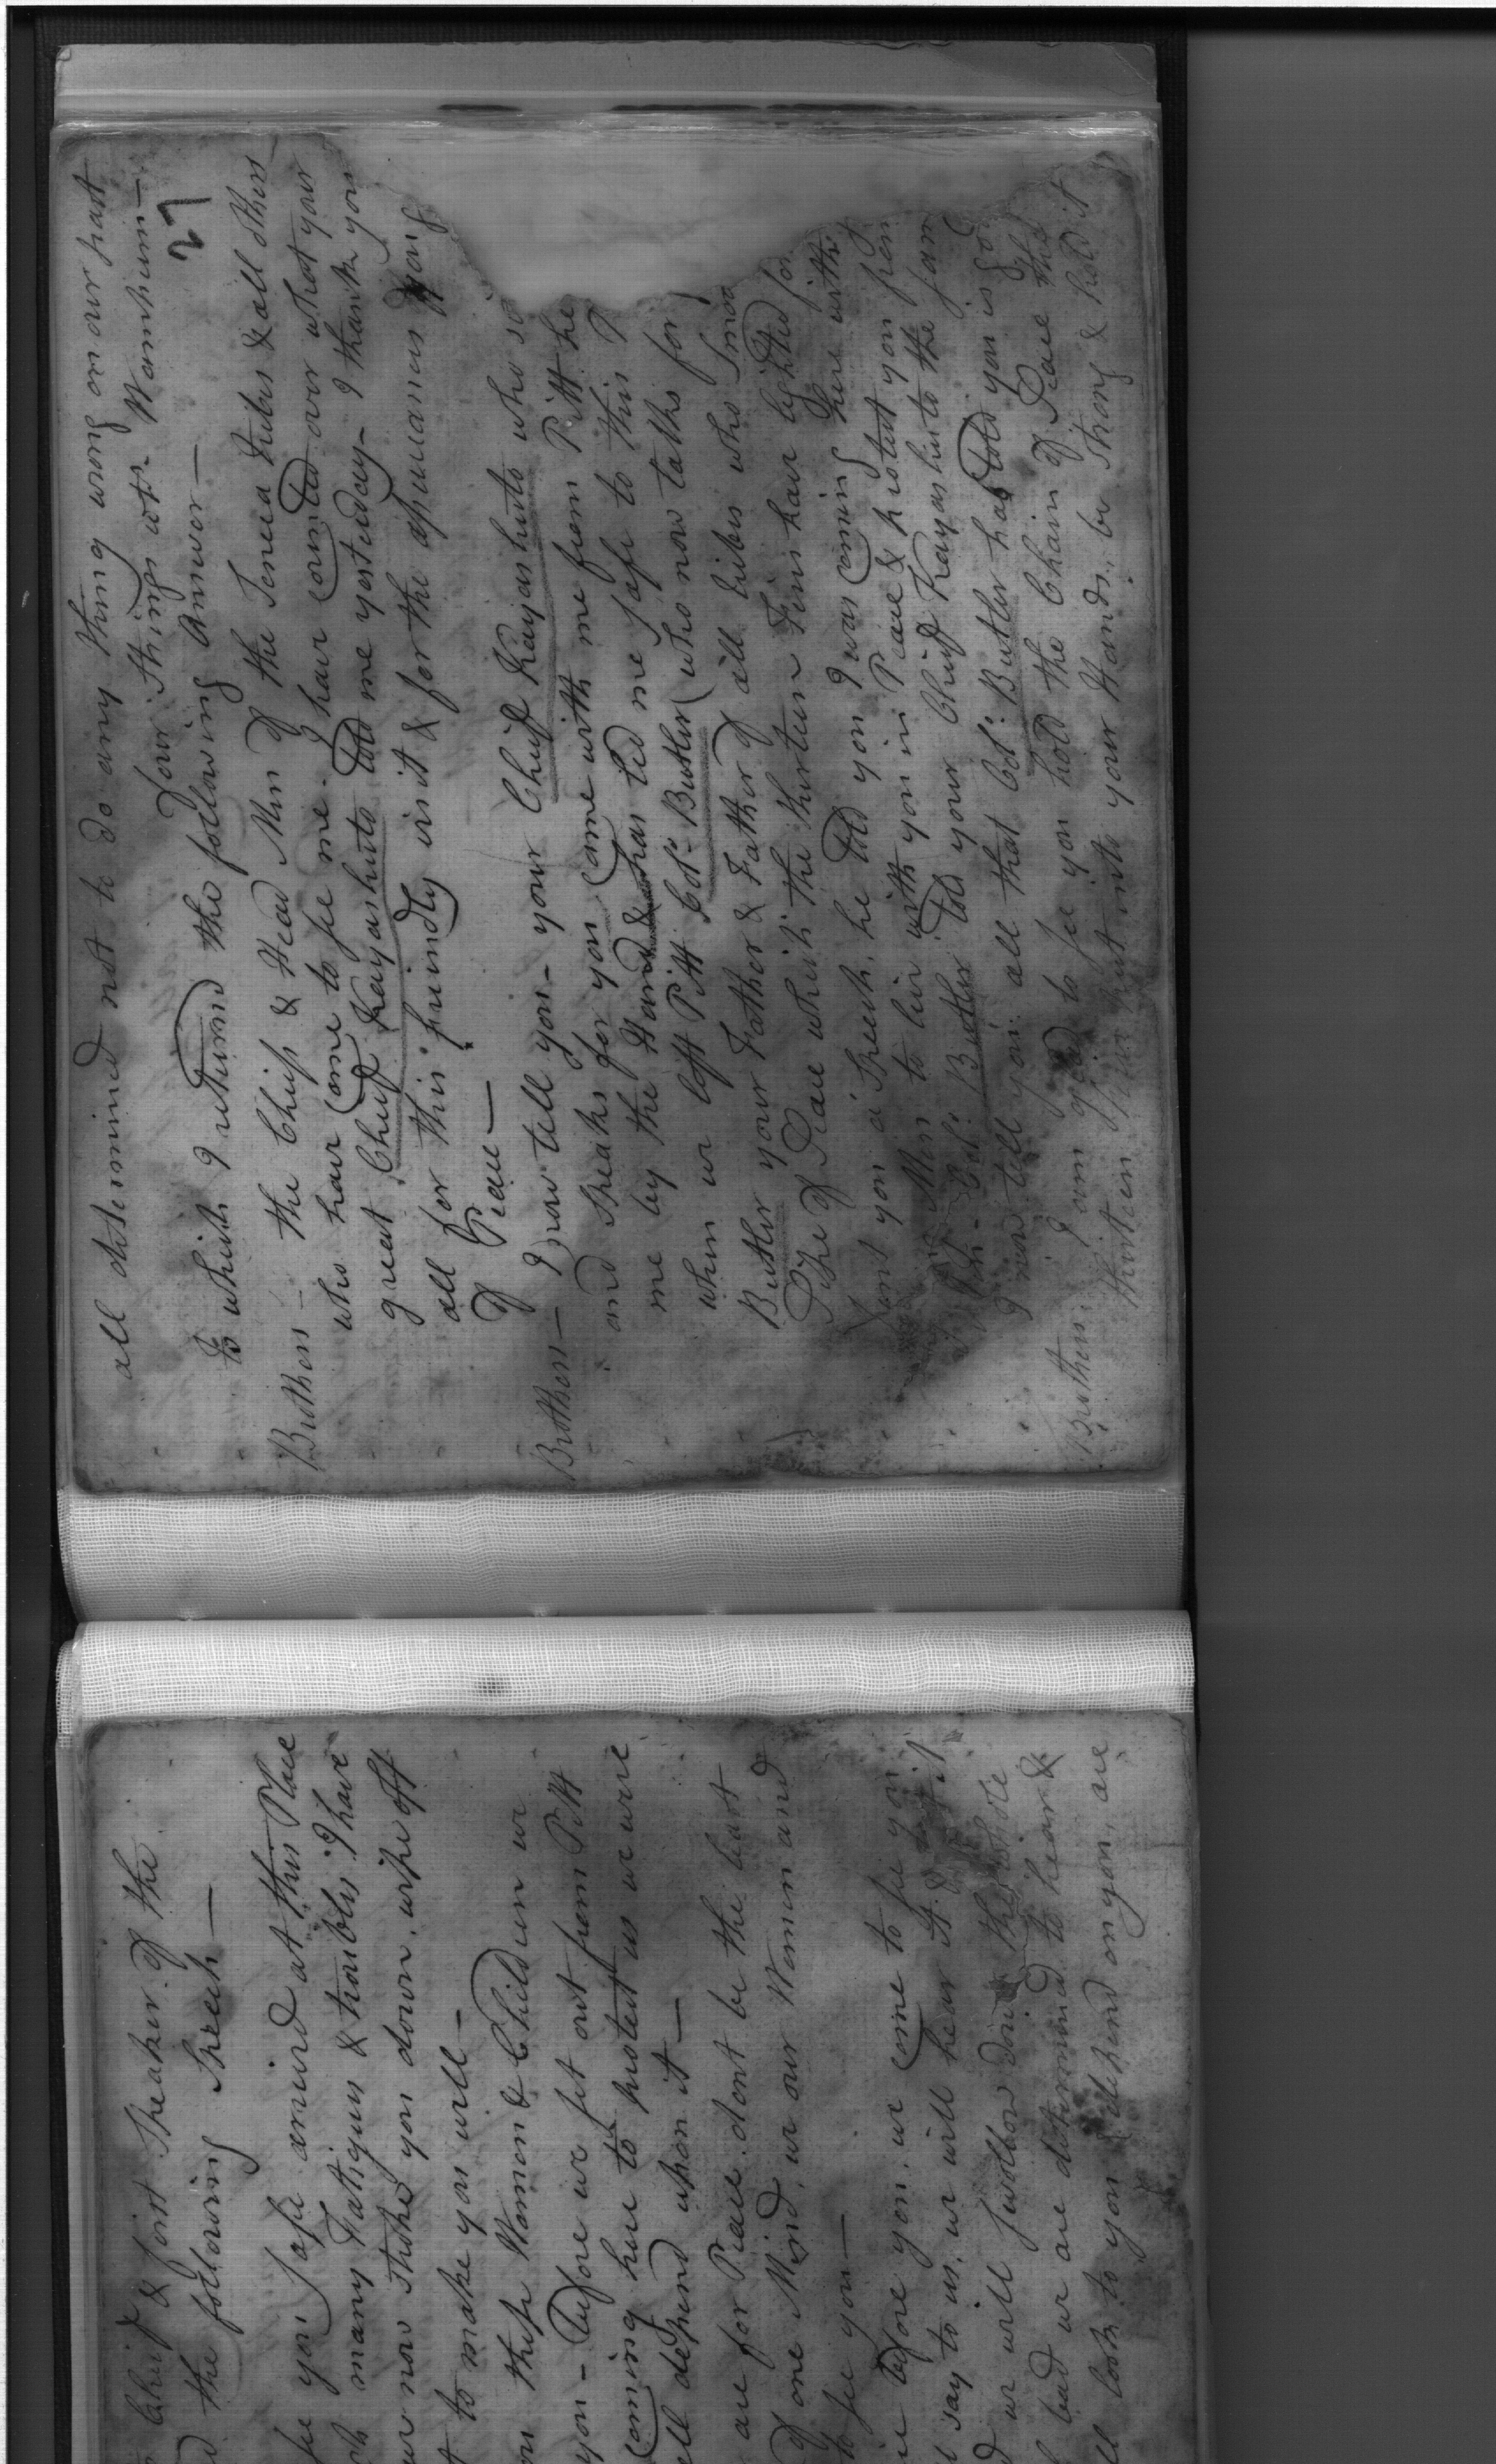 Chief & first Speaker of the
the following Speech —
see you safe arrived at this Place
many Fatigues & troubles I have
now Stroke you down, wipe off
to make you well —
these Women & Children we
you — Before we set out from Pitt
Coming here to protect us we were
depend upon it —
are for Peace. dont be the least
of one Mind, we our Women and
to see you —
before you, we Come to see you
say to us, we will hear it &
we will swallow down the whole
bad we are determined to hear &
look to you & depend on you, are
all determined not to do any thing wrong on our part
four Strings wt. Wampum —
27
To which I returnd the following Answer —
Brothers — the Chiefs & Head Men of the Seneca tribes & all others
who have Come to see me. I have Counted over what your
great Chief Kayashuto told me yesterday — I thank you
all for this friendly visit & for the assurances you g
of Peace —
Brothers — I now tell you — your Chief Kayashuto who so
and Speaks for you Came with me from Pitt he
me by the Hand & has led me safe to this P
when we left Pitt Colo. Butler (who now talks for
Butler your Father & Father of all tribes who smoa
Pipe of Peace which the thirteen Fires have lighted for
you a Speech, he told you I was Coming here with
Men to live with you in Peace & protect you from
Colo. Butler told your Chief Kayashuto the same
I now tell you all that Colo. Butler has told you is go
Brothers. I am glad to see you hold the Chain of Peace the
thirteen Fires put into your Hands, be Strong & hold it